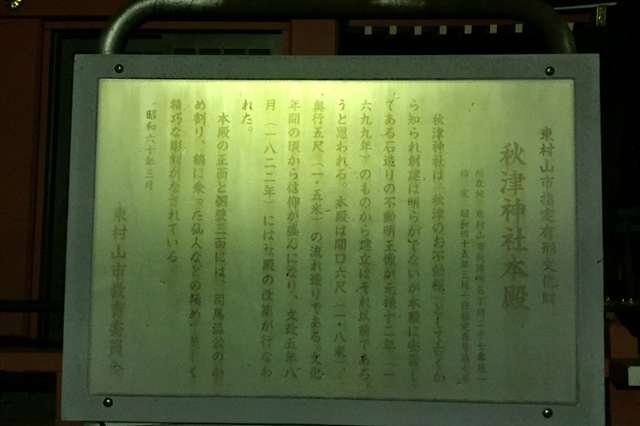 東村山市指定有形文化財
秋津神社本殿
所在地 東村山市秋津町五丁目
指定 昭和四十五年三月
秋津神社は「秋津のお不動様」として古くか
ら知られ創建は明らかでないが本殿に安置し
てある石造りの不動明王像が元禄十二年（一
六九九年）のものから建立はそれ以前である
うと思われる。本殿は間口六尺（一・八米）、
奥行五尺（一・五米）の流れ造りである。文化
年間の頃から信仰が盛んになり、文政五年八
月（一八二二年）には社殿の改築が行なわ
れた。
本殿の正面と側壁三面には、司馬温公のか
め割り、鶴に乗った仙人などの極めて
精巧な彫刻がなされている。
昭和六十年三月
東村山市教育委員会